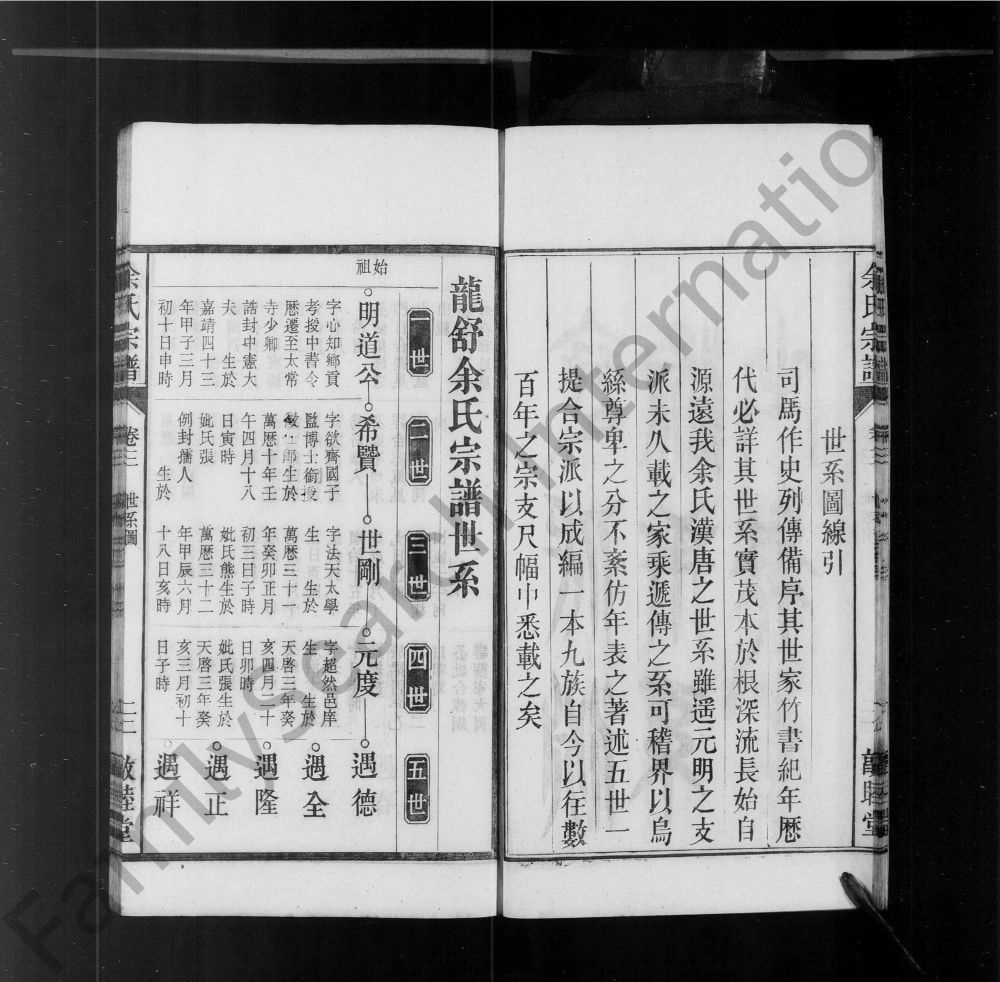 世系圖線引
司馬作史列傳備序其世家竹書紀年歷
代必詳其世系實茂本於根深流長始自
源遠我余氏漢唐之世系雖遥元明之支
派未久載之家乘遞傳之系可稽界以烏
絲尊卑之分不紊仿年表之著述五世一
提合宗派以成編一本九族自今以往數
百年之宗支尺幅中悉載之矣
龍舒余氏宗譜世系
一世
二世
三世
四世
五世
始祖
明道公
希賢
世剛
元度
遇德
字心知鄉貢
考授中書令
歷遷至太常
寺少卿
誥封中憲大
夫 生於
嘉靖四十三
年甲子三月
初十日申時
字欲齊國子
監博士銜授
郎生於
萬歷十年壬
午四月十八
日寅時
妣氏張
例封孺人
生於
字法天太學
生 生於
萬歷三十一
年癸卯正月
初三日子時
妣氏熊生於
萬歷三十二
年甲辰六月
十八日亥時
字超然邑庠
生 生於
天啓三年癸
亥四月二十
日卯時
妣氏張生於
天啓三年癸
亥三月初十
日子時
遇全
遇隆
遇正
遇祥
余氏宗譜
世系圖
敦睦堂
FamilySearch Internatio